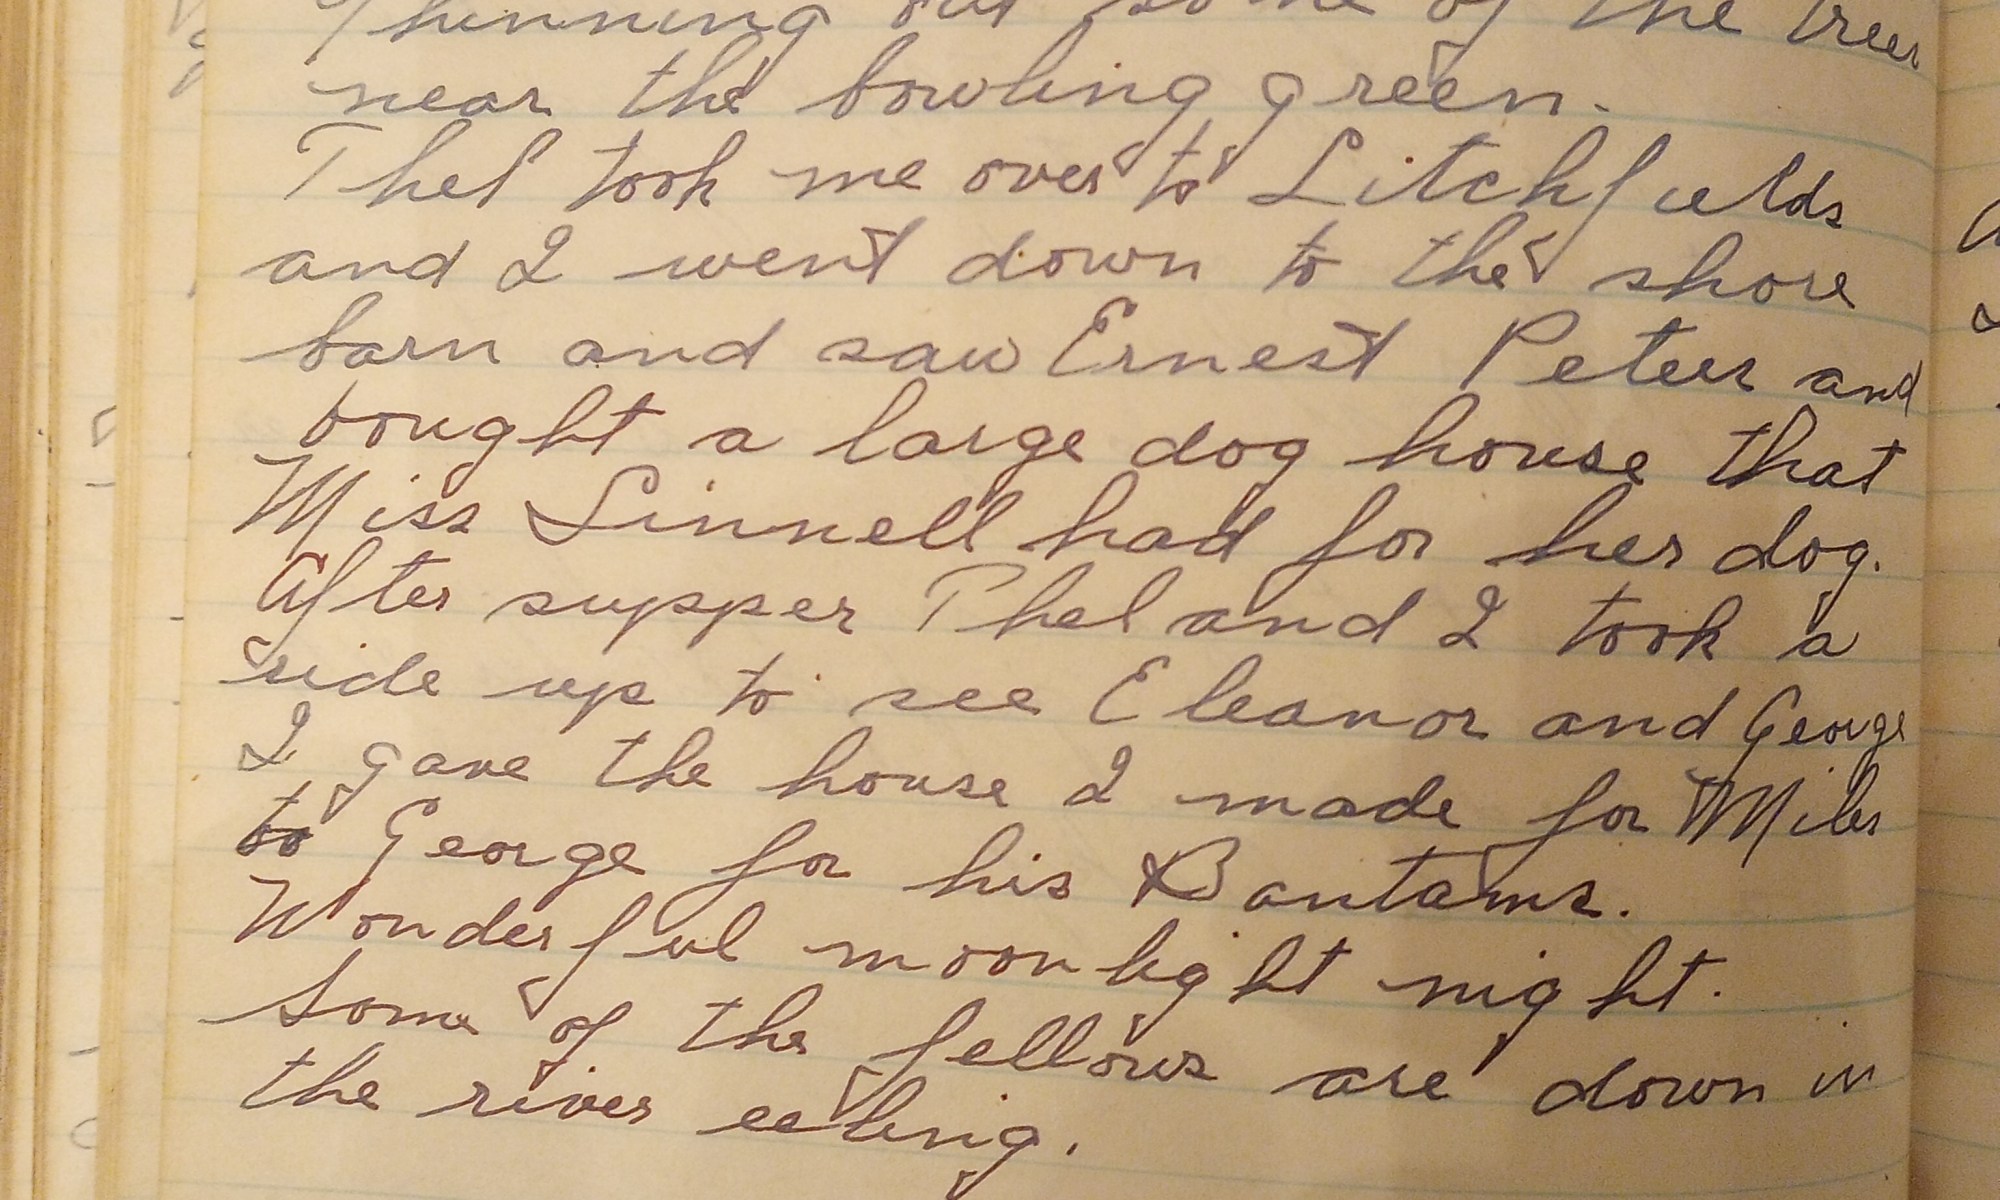 Thinning out some of the trees
near the bowling green.
Thel took me over to Litchfields
and I went down to the shore
barn and saw Ernest Peters and
bought a large dog house that
Miss Linnell had for her dog.
After supper Thel and I took a
ride up to see Eleanor and George
I gave the house I made for Miles
to George for his Bantams.
Wonderful moonlight night.
Some of the fellows are down in
the river eeling.